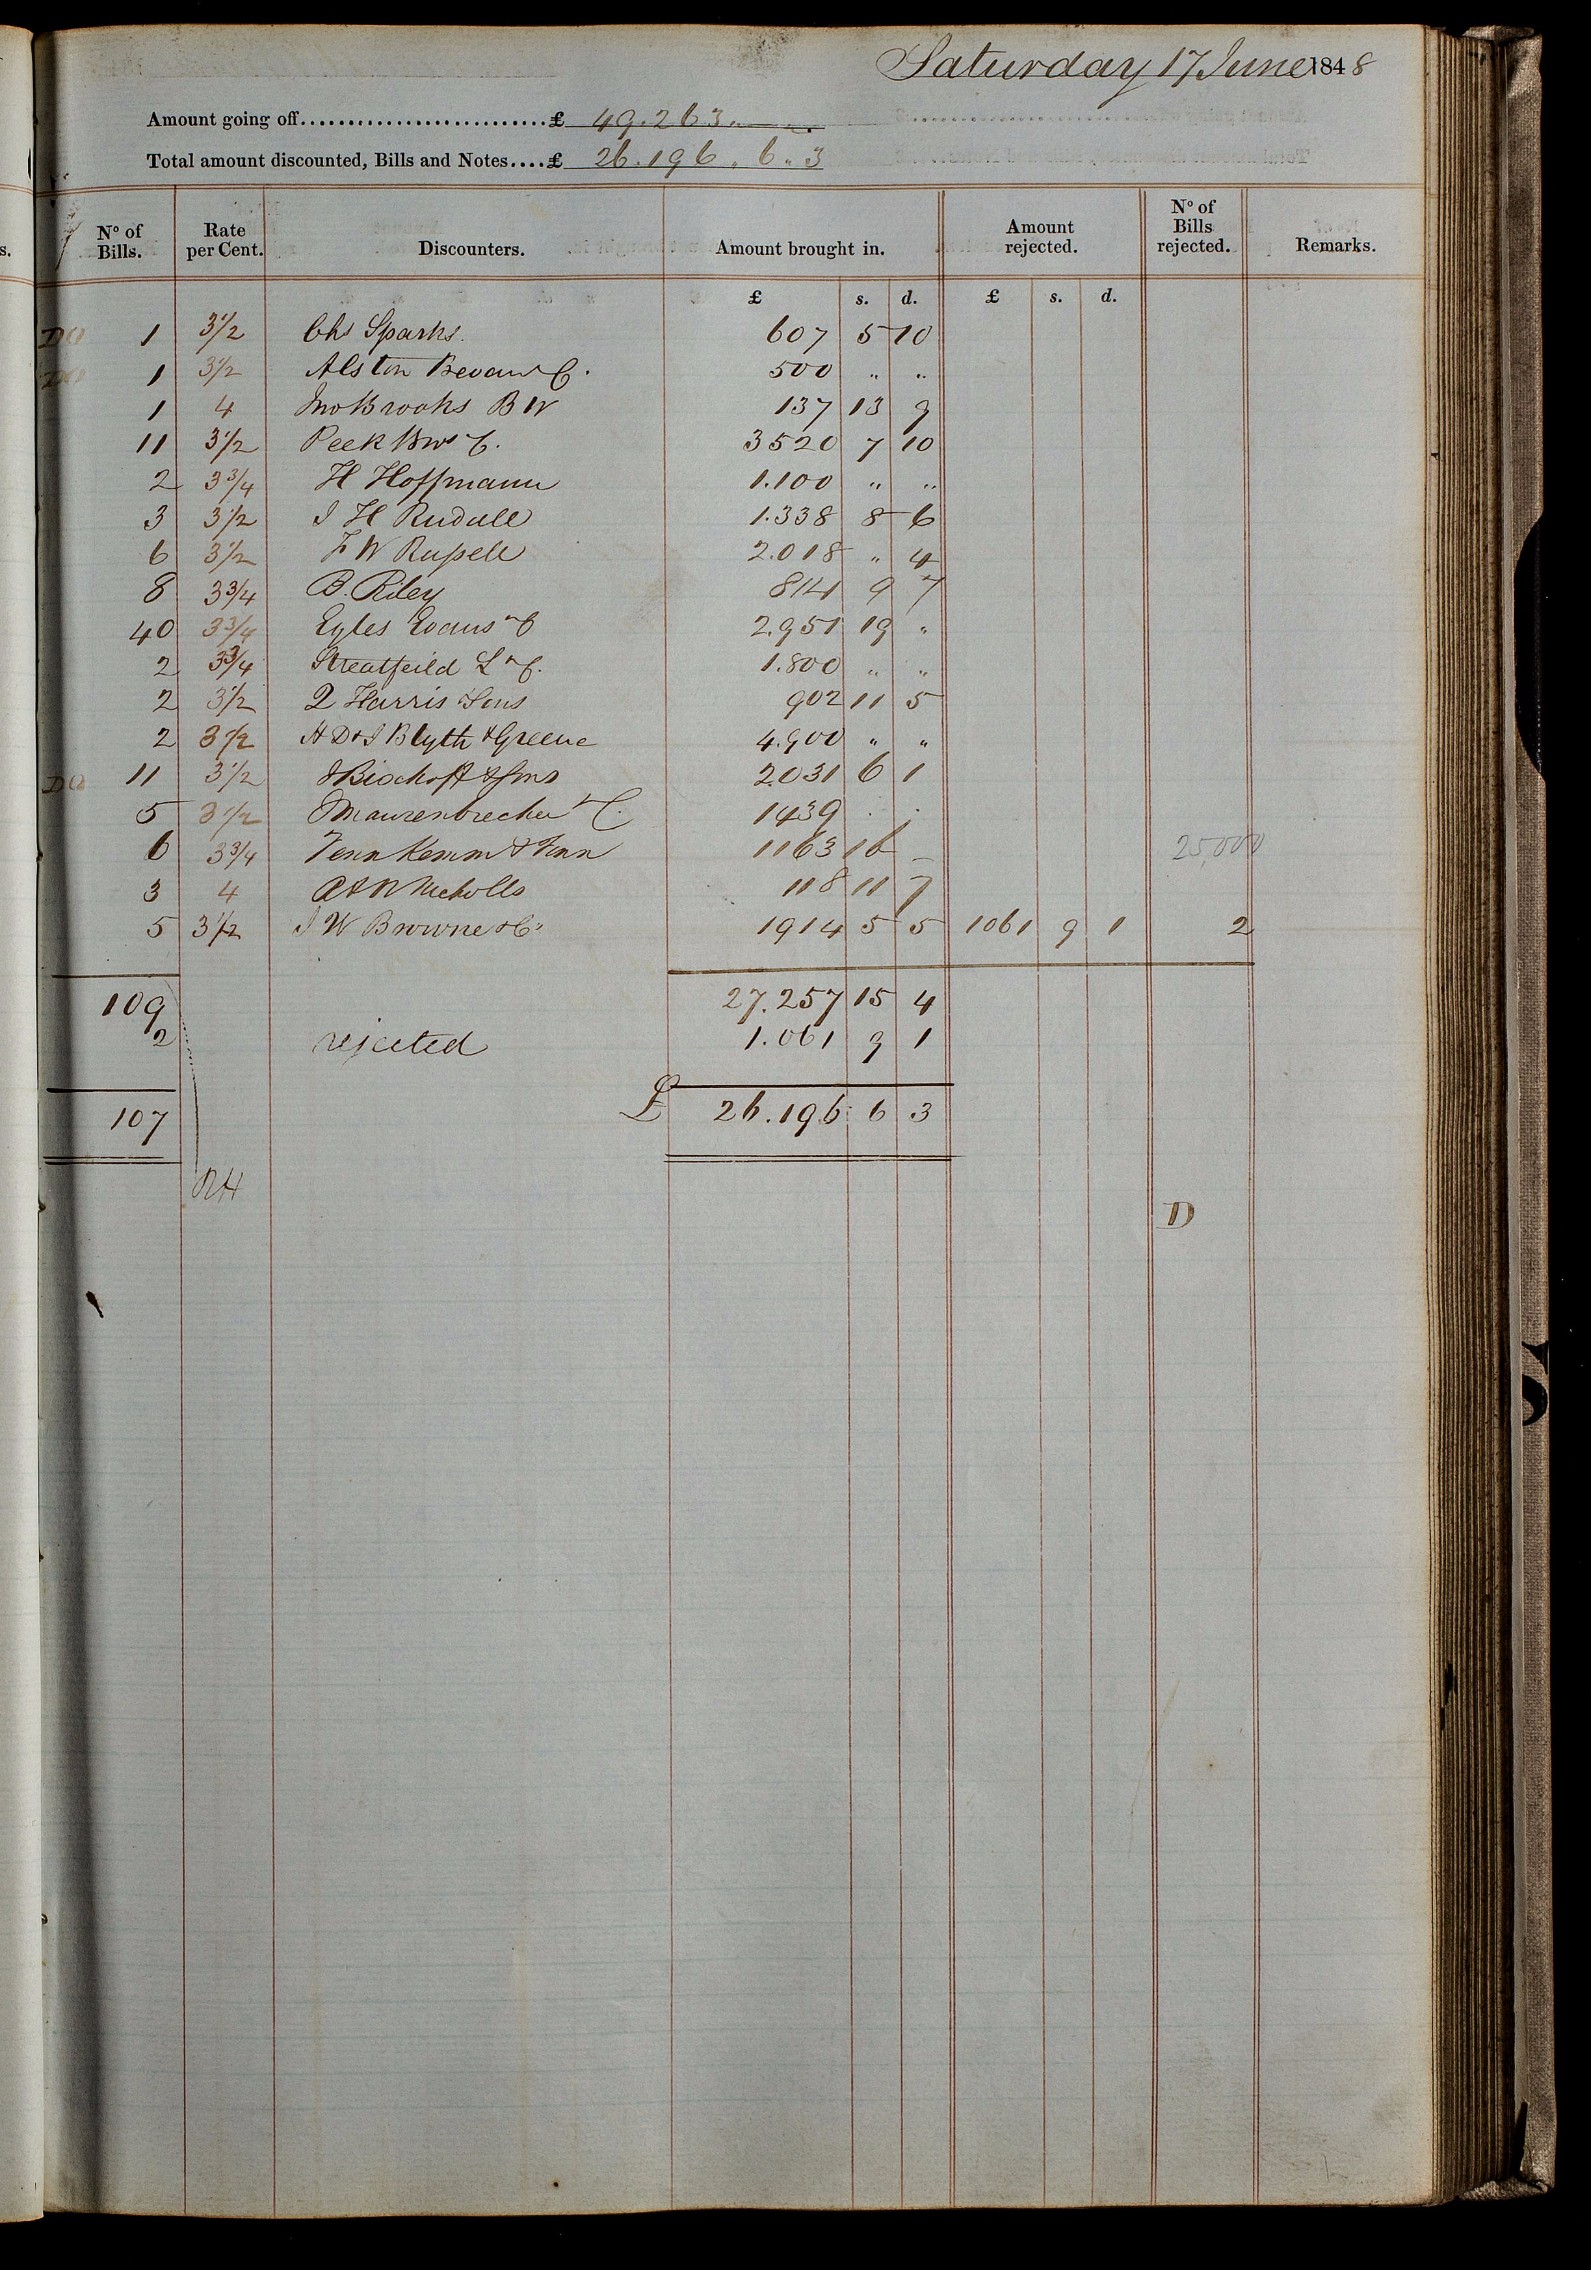 Saturday 17 June 1848
Amount going off..........................£ 49.263. —
Total amount discounted, Bills and Notes....£ 26.196 . 6 . 3
No of Bills. Rate per Cent. Discounters. Amount brought in. Amount rejected. No of Bills rejected. Remarks.
£ s. d. £ s. d.
1 3½ Chs Sparks. 607 5 10
1 3½ Alston Bevan & C. 500 " "
1 4 Jno Brooks B W 137 13 9
11 3½ Peek Bros & C. 3520 7 10
2 3¾ H Hoffmann 1.100 " "
3 3½ J H Rudall 1.338 8 6
6 3½ F W Russell 2.018 " 4
8 3¾ B. Riley 814 9 7
40 3¾ Eyles Evans & C 2.951 19 "
2 3¾ Streatfeild L & C. 1.800 " "
2 3½ Q Harris & Sons 902 11 5
2 3½ H D & J Blyth & Greene 4.900 " "
11 3½ J Bischoff & Sons 2031 6 1
5 3½ Maurenbrecher & C. 1439 . .
6 3¾ Venn Kemm & Venn 1163 16 _ 25,000
3 4 & W Nicholls 118 11 7
5 3½ J W Browne & Co 1914 5 5 1061 9 1 2
109 27.257 15 4
2 rejected 1.061 9 1
107 £ 26.196 6 3
RH
D